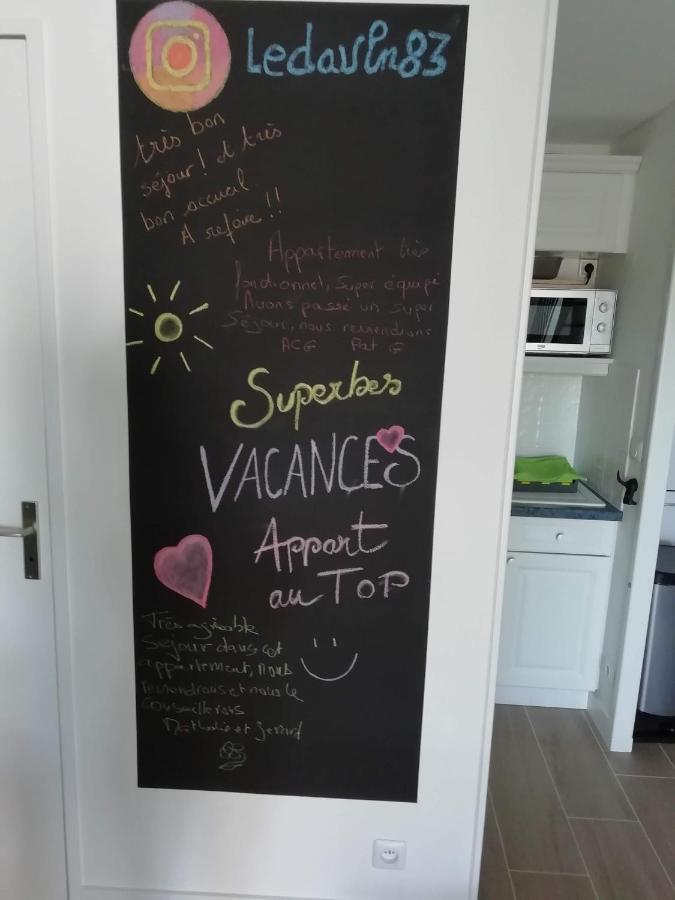 Ledavin83
très bon
séjour! et très
bon accueil.
A refaire!!
Appartement très
fonctionnel, super équipé
Nuons passé un super
Séjour, nous reviendrons
ACG Pat G
Superbes
VACANCES
Appart
au TOP
Très agréable
Séjour dans cet
appartement, nous
reviendrons et nous le
conseillerons
Nathalie et Jerard